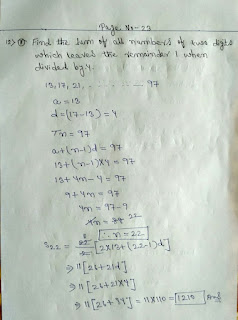 Page No - 23
12) Find the sum of all numbers of two digits
which leaves the remainder 1 when
divided by 4.
13, 17, 21, - - - - - - - - 97
a = 13
d = (17-13) = 4
Tn = 97
a + (n-1)d = 97
13 + (n-1)X4 = 97
13 + 4n - 4 = 97
9 + 4n = 97
4n = 97 - 9
∴ n = 22
S22 = [2X13 + (22-1)d]
⇒ 11[26 + 21d]
⇒ 11[26 + 21X4]
⇒ 11[26 + 84] = 11X110 = 1210